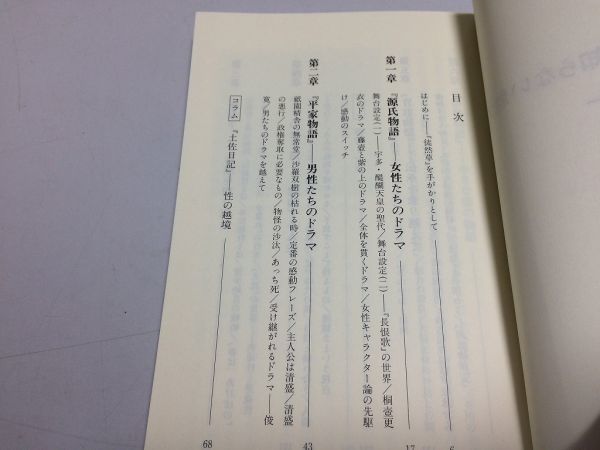 目次
はじめに――『徒然草』を手がかりとして
第一章 『源氏物語』――女性たちのドラマ
舞台設定(一)――宇多・醍醐天皇の聖代/舞台設定(二)――『長恨歌』の世界/桐壺更
衣のドラマ/藤壺と紫の上のドラマ/全体を貫くドラマ/女性キャラクター論の先駆
け/感動のスイッチ
17
第二章 『平家物語』――男性たちのドラマ
祇園精舎の無常堂/沙羅双樹の枯れる時/定番の感動フレーズ/主人公は清盛/清盛
の悪行/政権奪取に必要なもの/物怪の沙汰/あっち死/受け継がれるドラマ――俊
寛/男たちのドラマを越えて
43
コラム 『土佐日記』――性の越境
68